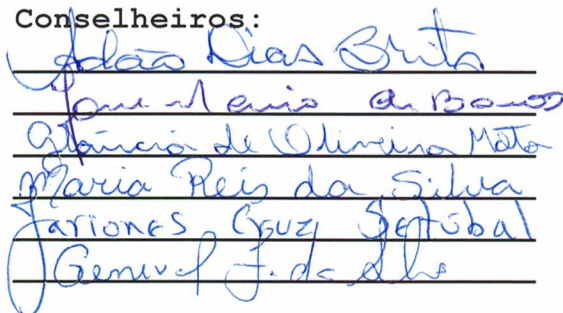 Conselheiros:
Adão Dias Brito
de Barros
Gláucia de Oliveira Mota
Maria Reis da Silva
Jariones Cruz Setúbal
Genival J. da Silva